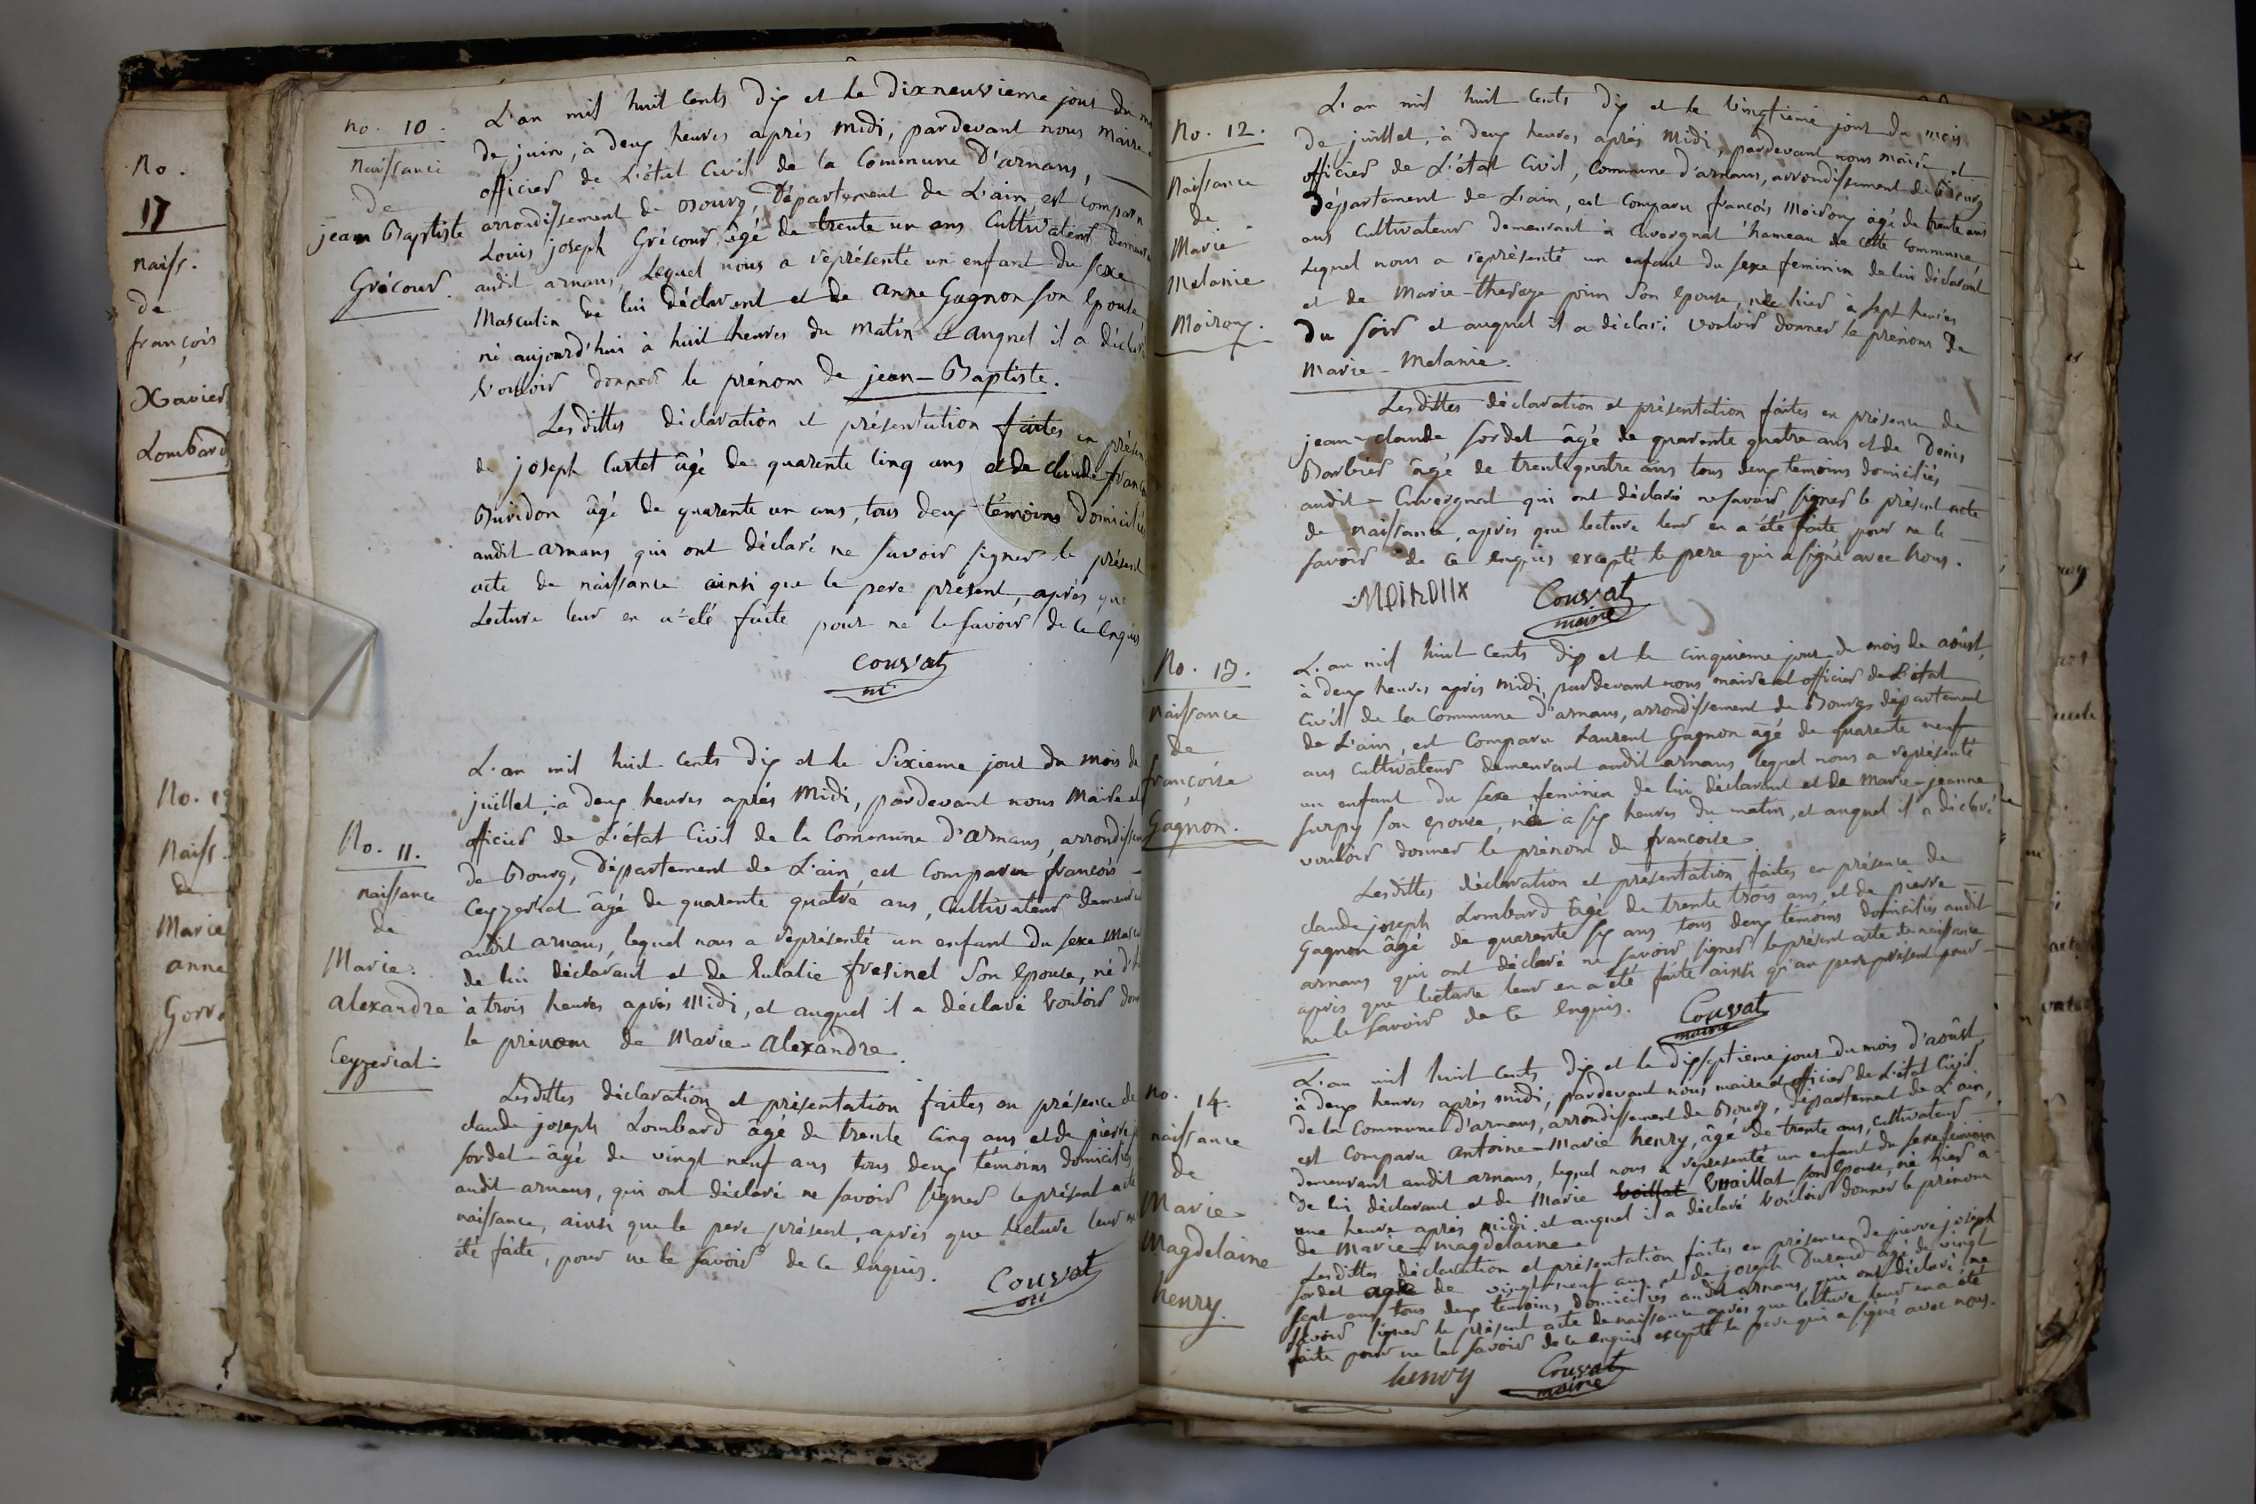 No.
17
naiss.
de
françois
Xavier
Lombard
No.
Naiss.
de
Marie
anne
no. 10.
Naissance
de
jean Baptiste
Grécour.
L'an mil huit Cents dix et le dixneuvieme jour du
de juin, à deux heures après midi, pardevant nous Maire
officier de L'état Civil de la Commune D'arnans,
arrondissement de Bourg, Département de L'ain est Comparu
Louis joseph Grécour âgé de trente un ans Cultivateur
audit arnans, Lequel nous a représenté un enfant du sexe
Masculin de lui déclarent et de anne Gagnon son épouse
né aujourd'hui à huit heures du matin et auquel il a déclaré
vouloir donner le prénom de jean-Baptiste.
Lesdittes déclaration et présentation faites en
de joseph Curtet âgé de quarente Cinq ans et de claude
Buridon âgé de quarente un ans, tous deux témoins
audit arnans, qui ont déclaré ne savoir signer le présent
acte de naissance ainsi que le pere présent, après que
Lecture leur en a été faite pour ne le savoir de Ce Enquis
Couvat
m
No. 11.
naissance
de
Marie.
alexandre
Ceyzeriat.
L'an mil huit Cents dix et le Sixieme jour du mois de
juillet, à deux heures après Midi, pardevant nous Maire et
officier de L'état Civil de la Commune d'arnans,
de Bourg, Département de L'ain, est Comparu françois
Ceyzeriat âgé de quarente quatre ans, Cultivateur
audit arnans, lequel nous a représenté un enfant du sexe
de lui déclarant et de Eulalie fresinet Son épouse, né
à trois heures après Midi, et auquel il a déclaré vouloir
le prénom de Marie-alexandre.
Lesdittes déclaration et présentation faites en présence de
claude joseph Lombard âgé de trente Cinq ans et de pierre
Sordet âgé de vingt neuf ans tous deux témoins domiciliés
audit arnans, qui ont déclaré ne savoir signer le présent acte
naissance, ainsi que le pere présent, après que lecture leur
été faite, pour ne le savoir de Ce Enquis.
Couvat
No. 12.
Naissance
de
Marie
Melanie
Moiroux.
L'an mil huit Cents dix et le vingtieme jour du mois
de juillet, à deux heures après Midi, pardevant nous maire et
officier de L'état Civil, Commune d'arnans, arrondissement de Bourg
Département de L'ain, est Comparu françois Moiroux âgé de trente ans
ans Cultivateur demeurant à Cuvergnat hameau de cette Commune,
Lequel nous a représenté un enfant du sexe feminin de lui déclarant
et de Marie-Thereze Son épouse, née hier à sept heures
du soir et auquel il a déclaré vouloir donner le prénom de
Marie-Melanie.
Lesdittes déclaration et présentation faites en présence de
jean-claude Sordet âgé de quarente quatre ans et de Denis
Barbier âgé de trente quatre ans tous deux témoins domiciliés
audit Cuvergnat qui ont déclaré ne savoir signer le présent acte
de naissance, après que lecture leur en a été faite, pour ne le
savoir de Ce Enquis excepté le pere qui a signé avec Nous.
MOIROUX
Couvat
maire
No. 13.
naissance
de
françoise
Gagnon.
L'an mil huit Cents dix et le cinquieme jour du mois de août,
à deux heures après midi, pardevant nous maire et officier de L'état
Civil de la Commune d'arnans, arrondissement de Bourg département
de L'ain, est Comparu Laurent Gagnon âgé de quarente neuf
ans Cultivateur demeurant audit arnans lequel nous a représenté
un enfant du sexe feminin de lui déclarant et de Marie-jeanne
son épouse, née à six heures du matin, et auquel il a déclaré
vouloir donner le prénom de françoise.
Lesdittes déclaration et présentation faites en présence de
claude joseph Lombard âgé de trente trois ans, et de pierre
Gagnon âgé de quarente six ans tous deux témoins domiciliés audit
arnans qui ont déclaré ne savoir signer le présent acte de naissance
après que lecture leur en a été faite ainsi qu'au pere présent pour
ne le savoir de Ce Enquis.
Couvat
maire
no. 14.
naissance
de
Marie
magdelaine
henry.
L'an mil huit cents dix et le dixseptieme jour du mois d'août,
à deux heures après midi, pardevant nous maire et officier de L'état Civil
de la Commune d'arnans, arrondissement de Bourg, département de L'ain,
est Comparu Antoine-Marie henry, âgé de trente ans, cultivateur
demeurant audit arnans, lequel nous a représenté un enfant du sexe feminin
de lui déclarant et de Marie Vuaillat son épouse, né hier à
une heure après midi et auquel il a déclaré vouloir donner le prénom
de Marie-magdelaine.
Lesdittes déclaration et présentation faites en présence de pierre joseph
Sordet agé de vingt neuf ans et de joseph Durand âgé de vingt
sept ans tous deux témoins domiciliés audit arnans, qui ont déclaré ne
savoir signer le présent acte de naissance après que lecture leur en a été
faite pour ne le savoir de Ce Enquis excepté le pere qui a signé avec nous.
henry
Couvat
maire